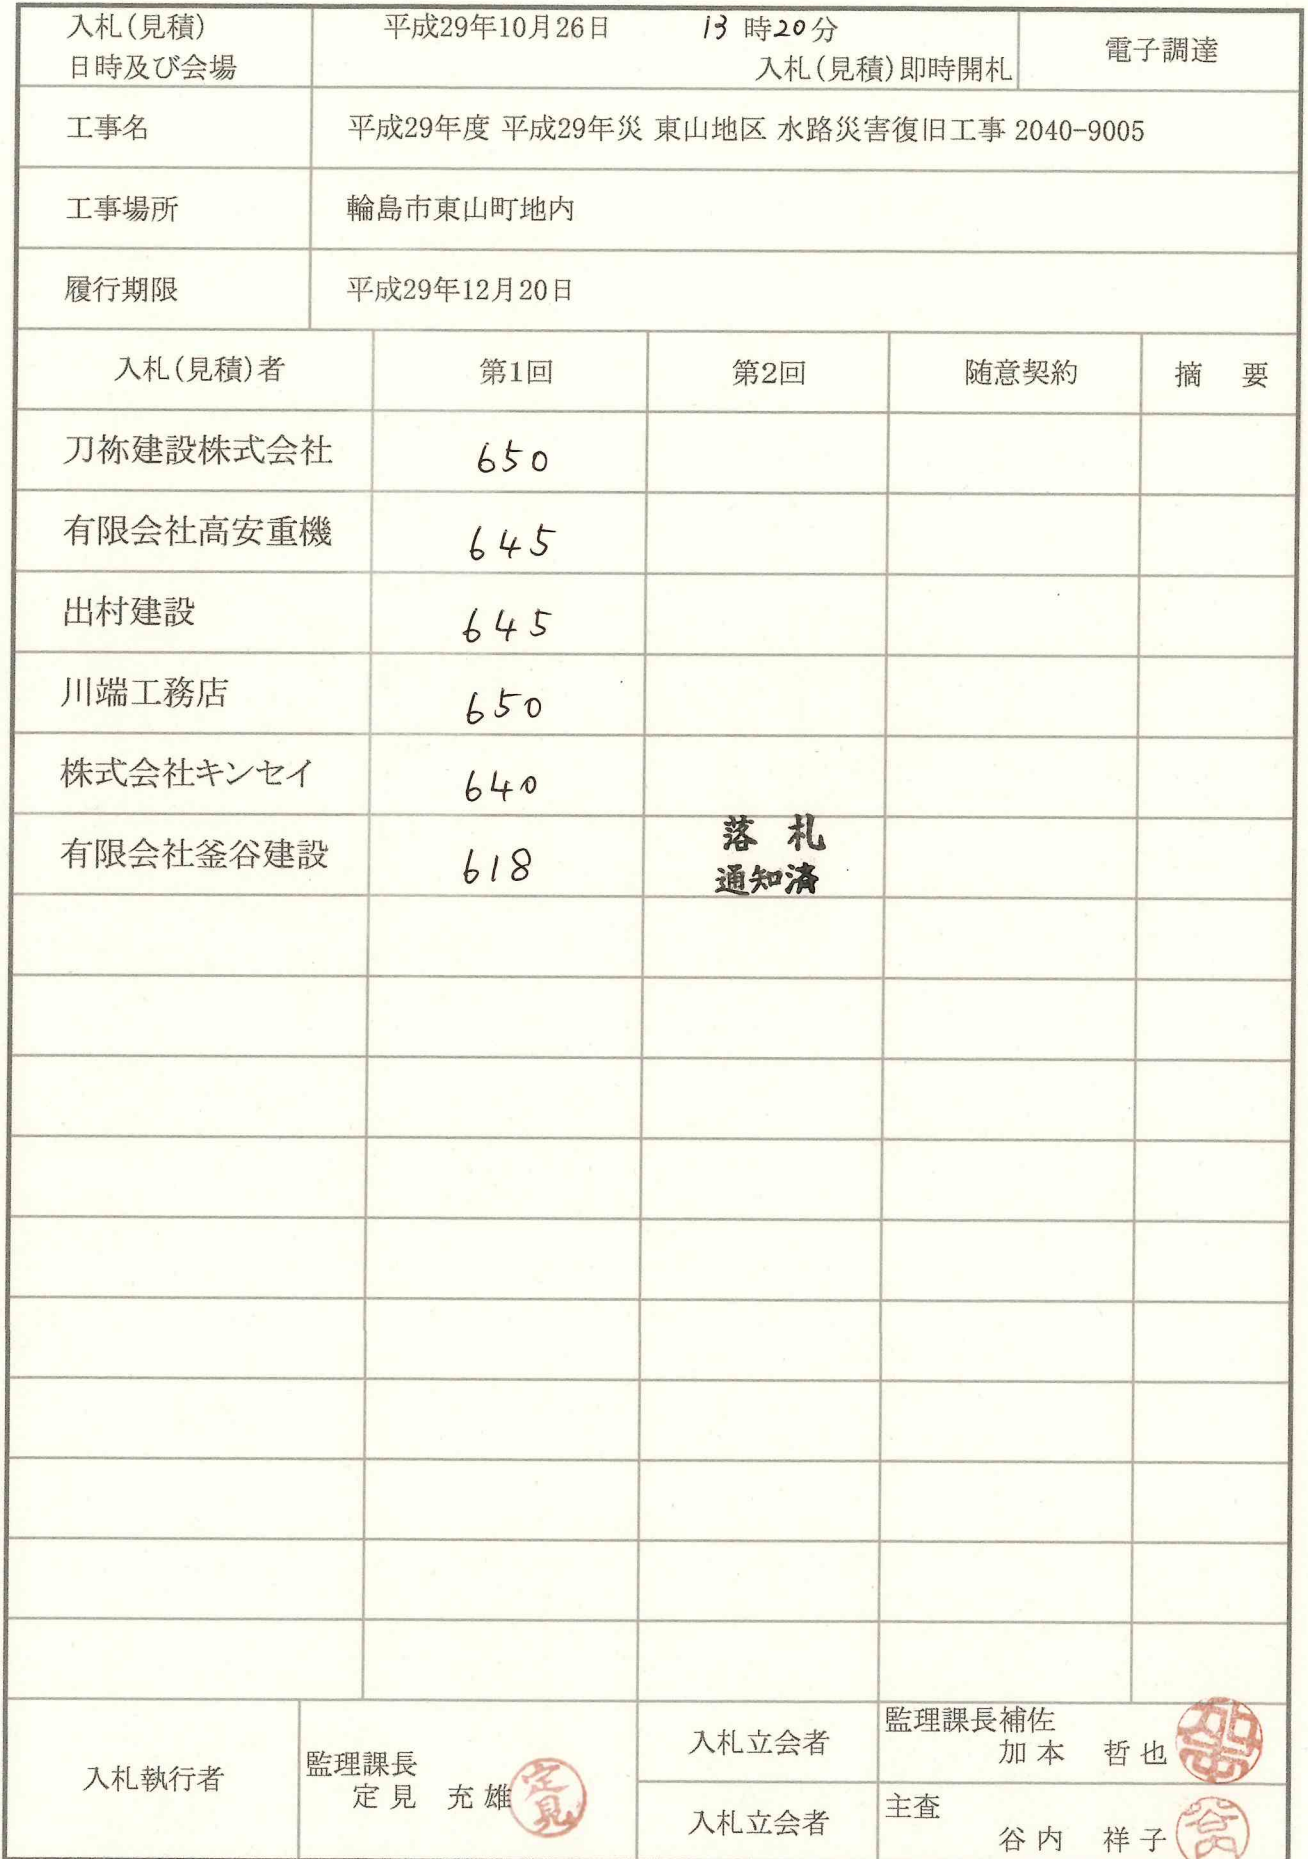 入札(見積) 平成29年10月26日 13時20分 電子調達
日時及び会場 入札(見積)即時開札
工事名 平成29年度 平成29年災 東山地区 水路災害復旧工事 2040-9005
工事場所 輪島市東山町地内
履行期限 平成29年12月20日
入札(見積)者 第1回 第2回 随意契約 摘 要
刀祢建設株式会社 650
有限会社高安重機 645
出村建設 645
川端工務店 650
株式会社キンセイ 640
有限会社釜谷建設 618 落札
通知済
入札執行者 監理課長
定見 充雄 定見
入札立会者 監理課長補佐
加本 哲也
入札立会者 主査
谷内 祥子 谷内